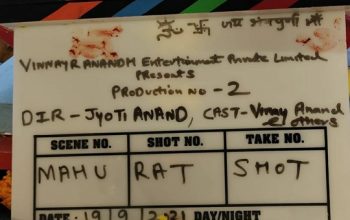 VINNAYR ANANDH Entertainment Private Limited
Presents
PRODUCTION NO - 2
DIR - JYOTI ANAND, CAST - Vinay Anand
& others
SCENE NO. SHOT NO. TAKE NO.
MAHU RAT SHOT
DATE: 19/9/2021 DAY/NIGHT